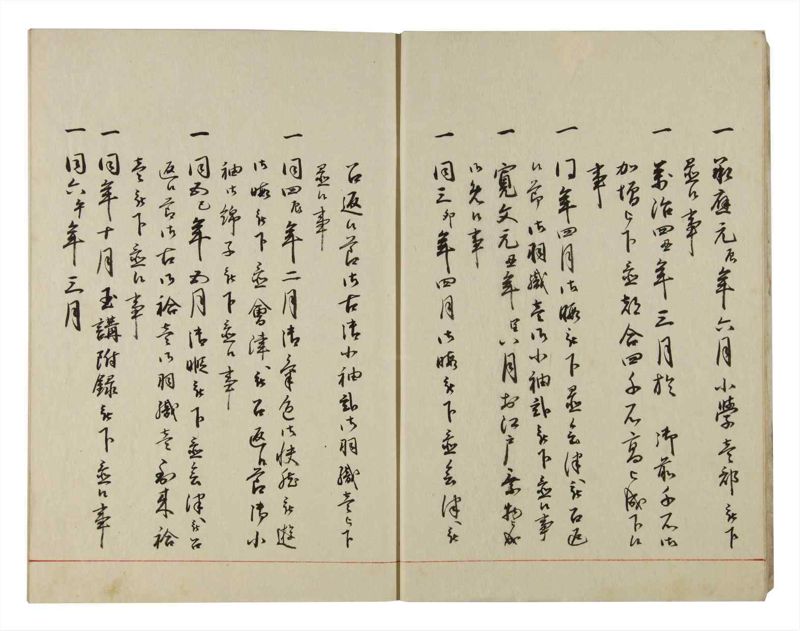 一 承應元辰年六月小學壱部被下
置候事
一 萬治四丑年三月於 御前千石御
加増被下置都合四千石高被成下候
事
一 同年四月御暇被下置會津江被召返
候節御羽織壱御小袖弐被下置候事
一 寛文元丑年 八月於江戸乗物
御免候事
一 同三卯年四月御暇被下置會津江被
召返候節御古御小袖弐御羽織壱被下
置候事
一 同四辰年二月御氣色御快然被遊
御暇被下置會津江召返候節御小
袖御綿子被下置候事
一 同五巳年五月御暇被下置會津江召
返候節御古御袷壱御羽織壱 袷
壱被下置候事
一 同年十月玉講附録被下置候事
一 同六午年三月